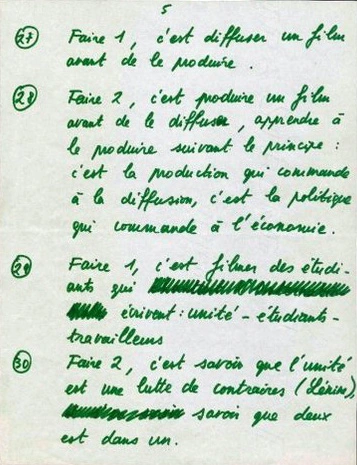 5
27 Faire 1, c'est diffuser un film
avant de le produire.
28 Faire 2, c'est produire un film
avant de le diffuser, apprendre à
le produire suivant le principe :
c'est la production qui commande
à la diffusion, c'est la politique
qui commande à l'économie.
29 Faire 1, c'est filmer des étudi-
ants qui
écrivent : unité - étudiants -
travailleurs
30 Faire 2, c'est savoir que l'unité
est une lutte de contraires (Lénine),
savoir que deux
est dans un.